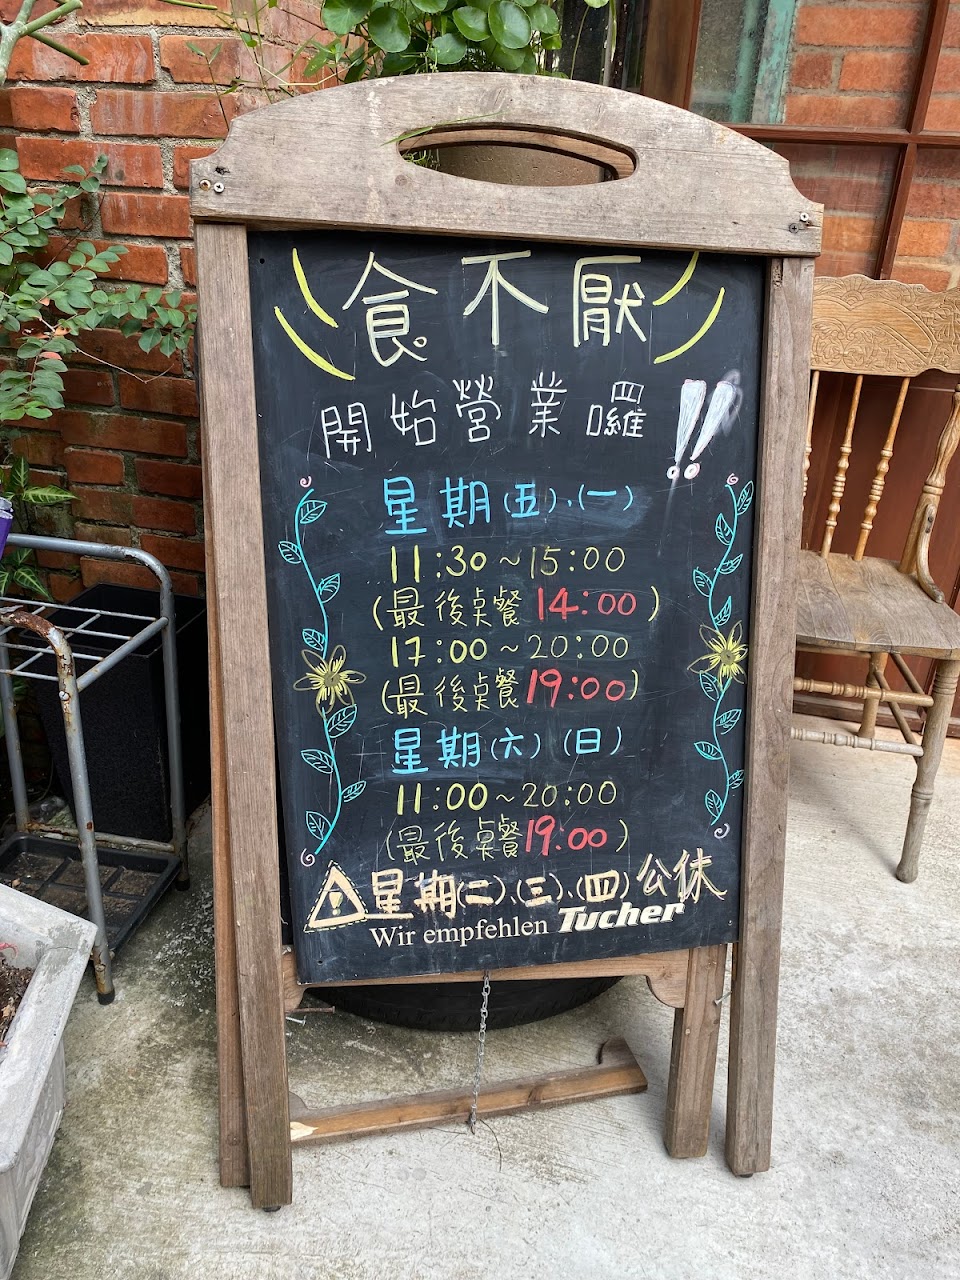 食不厭
開始營業囉!!
星期(五)、(一)
11:30~15:00
(最後桌餐14:00)
17:00~20:00
(最後桌餐19:00)
星期(六)(日)
11:00~20:00
(最後桌餐19:00)
星期(二)、(三)、(四)公休
Wir empfehlen Tucher